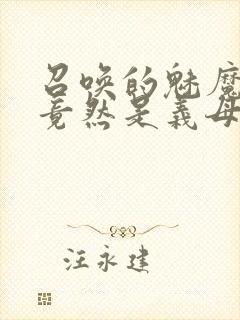 召唤的魅魔
竟然是义母
汪永建